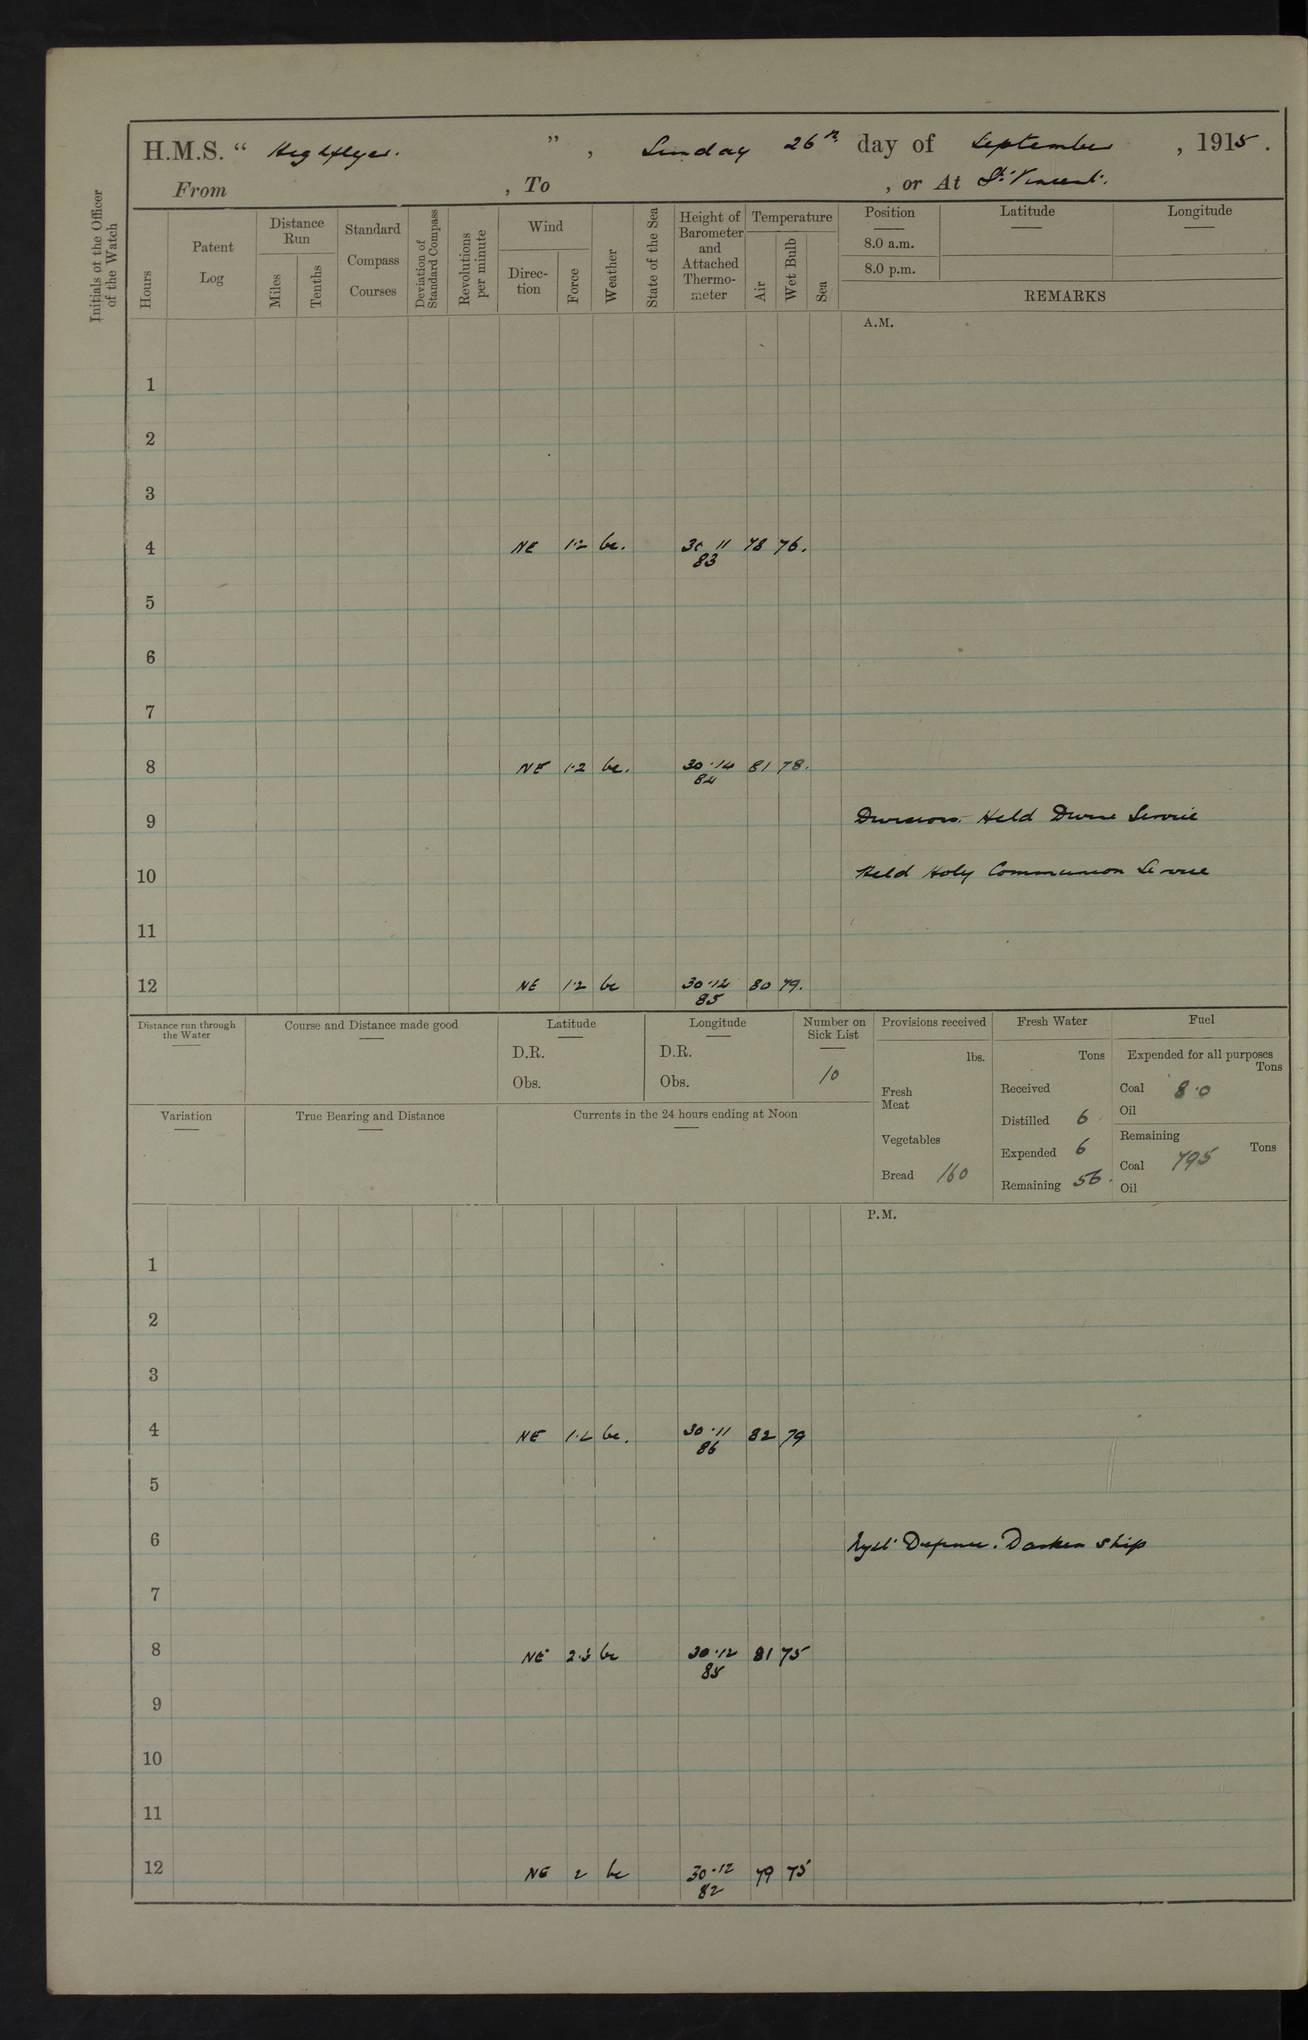 H.M.S. " Highflyer. " , Sunday 26th day of September , 1915 .
From , To , or At St. Vincent.
Initials of the Officer of the Watch
Hours
Patent Log
Distance Run
Miles
Tenths
Standard Compass Courses
Deviation of Standard Compass
Revolutions per minute
Wind
Direc-tion
Force
Weather
State of the Sea
Height of Barometer and Attached Thermo-meter
Temperature
Air
Wet Bulb
Sea
Position Latitude Longitude
8.0 a.m.
8.0 p.m.
REMARKS
A.M.
1
2
3
4 NE 1·2 bc. 30 11 78 76.
83
5
6
7
8 NE 1·2 bc. 30·14 81 78.
84
9 Divisions. Held Divine Service
10 Held Holy Communion Service
11
12 NE 1·2 bc 30·12 80 79.
85
Distance run through the Water
Course and Distance made good
Latitude
D.R.
Obs.
Longitude
D.R.
Obs.
Number on Sick List
10
Variation
True Bearing and Distance
Currents in the 24 hours ending at Noon
Provisions received
lbs.
Fresh Meat
Vegetables
Bread 160
Fresh Water
Tons
Received
Distilled 6
Expended 6
Remaining 56.
Fuel
Expended for all purposes
Tons
Coal 8·0
Oil
Remaining
Tons
Coal 795
Oil
P.M.
1
2
3
4 NE 1·2 bc. 30·11 82 79
86
5
6 Night Defence. Darken Ship
7
8 NE 2·3 bc 30·12 81 75
85
9
10
11
12 NE 2 bc 30·12 79 75
82